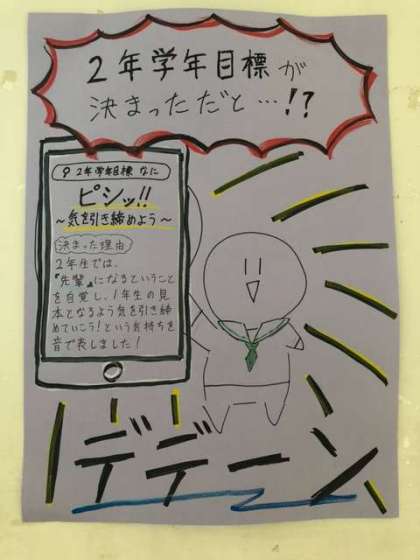 2年学年目標が
決まっただと…!?
2年学年目標 なに
ピシッ!!
~気を引き締めよう~
決まった理由
2年生では、
"先輩"になるということ
を自覚し、1年生の見
本となるよう気を引き締
めていこう!という気持ちを
音で表しました!
デデーン